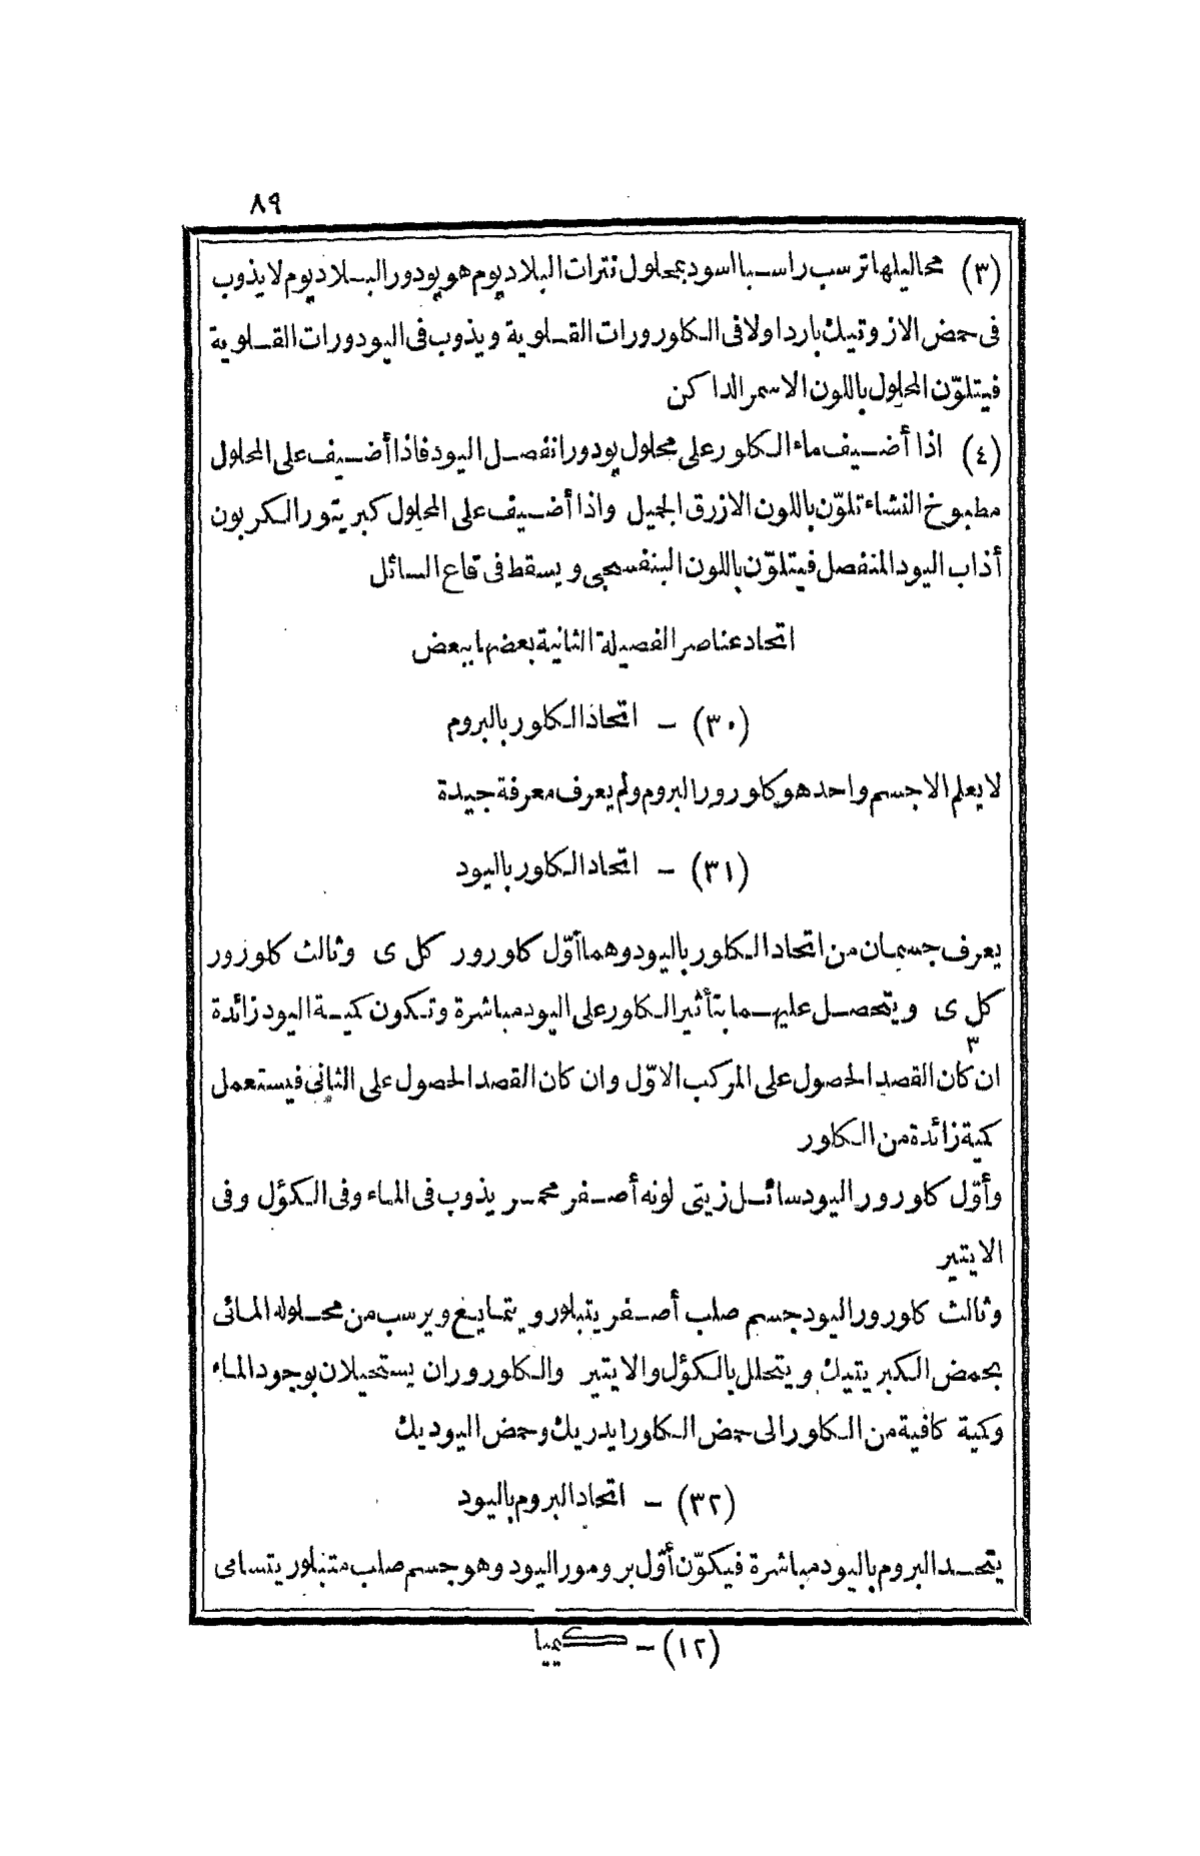 ٨٩
(٣) محاليلها ترسب راسبا اسود بمحلول نترات البلاديوم هو يودور البلاديوم لا يذوب
فى حمض الازوتيك باردا ولا فى الكلورورات القلوية ويذوب فى اليودورات القلوية
فيتلوّن المحلول باللون الاسمر الداكن
(٤) اذا أضيف ماء الكلور على محلول يودور انفصل اليود فاذا أضيف على المحلول
مطبوخ النشاء تلوّن باللون الازرق الجميل واذا أضيف على المحلول كبريتور الكربون
أذاب اليود المنفصل فيتلوّن باللون البنفسجى ويسقط فى قاع السائل
اتحاد عناصر الفصيلة الثانية بعضها ببعض
(٣٠) - اتحاد الكلور بالبروم
لا يعلم الا جسم واحد هو كلورور البروم ولم يعرف معرفة جيدة
(٣١) - اتحاد الكلور باليود
يعرف جسمان من اتحاد الكلور باليود وهما أوّل كلورور كل ى وثالث كلورور
كل ى ويتحصل عليهما بتأثير الكلور على اليود مباشرة وتكون كمية اليود زائدة
٣
ان كان القصد الحصول على المركب الاوّل وان كان القصد الحصول على الثانى فيستعمل
كمية زائدة من الكلور
وأوّل كلورور اليود سائل زيتى لونه أصفر محمر يذوب فى الماء وفى الكؤل وفى
الايتير
وثالث كلورور اليود جسم صلب أصفر يتبلور ويتمايع ويرسب من محلوله المائى
بحمض الكبريتيك ويتحلل بالكؤل والايتير والكلوروران يستحيلان بوجود الماء
وكمية كافية من الكلور الى حمض الكلورايدريك وحمض اليوديك
(٣٢) - اتحاد البروم باليود
يتحد البروم باليود مباشرة فيكوّن أوّل برومور اليود وهو جسم صلب متبلور يتسامى
(١٢) - كيميا